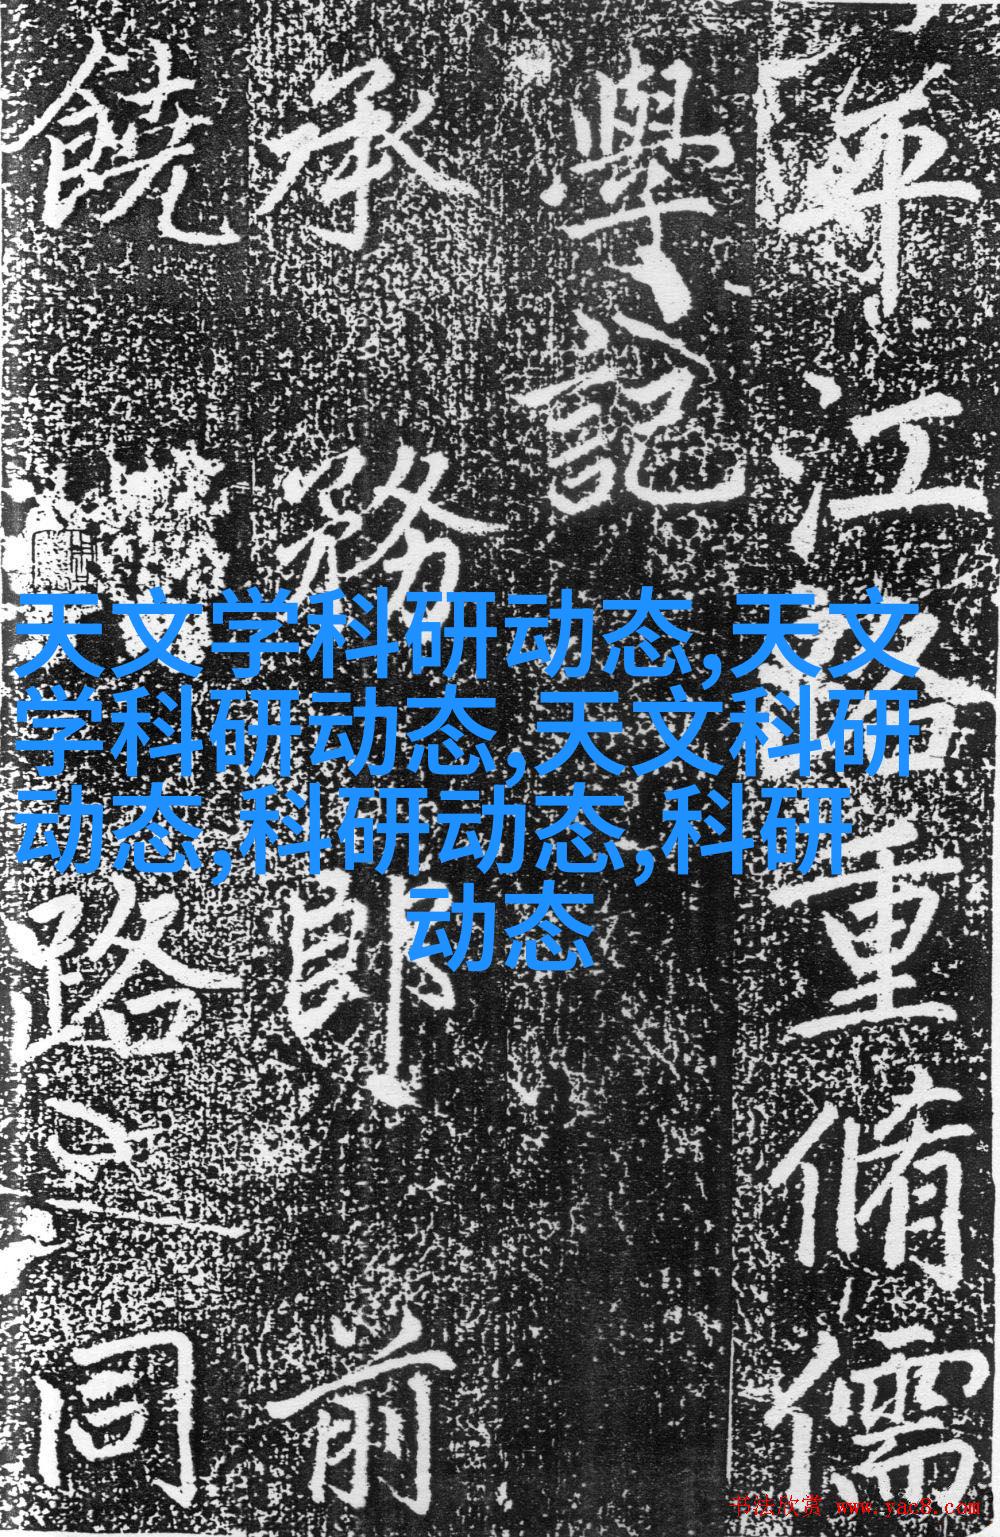 平江路重脩儒
學記
承務郎前
饒路同
天文学科研动态,天文
学科研动态,天文科研
动态,科研动态,科研
动态
书法欣赏 www.yac8.com